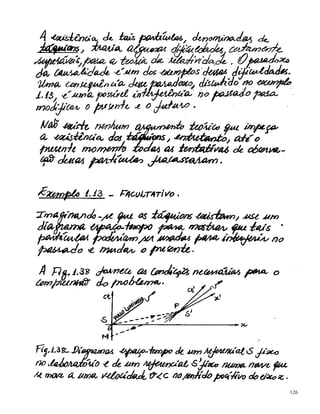 A existência, de tais partículas, denominadas de
táquions, traria algumas dificuldades, certamente
superáveis, para a teoria da relatividade. O paradoxo
da causalidade é um dos exemplos dessas dificuldades.
Uma consequência desse paradoxo, discutido no exemplo
1.13, é uma possível interferência no passado para
modificar o presente e o futuro.
Não existe nenhum argumento teórico que impeça
a existência dos táquions, entretanto, até o
presente momento todas as tentativas de observa-
ção dessas partículas fracassaram.
Exemplo 1.13 - FACULTATIVO.
Imaginando-se que os táquions existam, use um
diagrama espaço-tempo para mostrar que tais
partículas poderiam ser usadas para interferir no
passado e mudar o presente.
A Fig. 1.38 fornece as condições necessárias para o
do problema.
ct ct' x'
P S'
S O x
M
Fig. 1.38. Diagramas espaço-tempo de um referencial S fixo
no laboratório e de um referencial S' fixo numa nave que
se move a uma velocidade v<c no sentido positivo do eixo x.
126